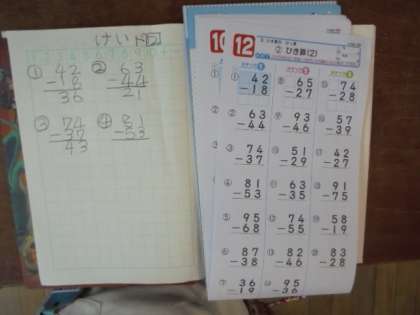 けいドリ
① 42 ② 63
-18 -44
36 21
③ 74 ④ 81
-37 -53
43
10 12
② ひき算(2)
① 42 ⑧ 65 ⑮ 74
-18 -27 -28
② 63 ⑨ 93 ⑯ 57
-44 -46 -39
③ 74 ⑩ 51 ⑰ 42
-37 -29 -27
④ 81 ⑪ 63 ⑱ 91
-53 -35 -75
⑤ 95 ⑫ 74 ⑲ 58
-68 -55 -19
⑥ 87 ⑬ 82 ⑳ 83
-38 -46 -28
⑦ 36 ⑭ 95
-19 -36